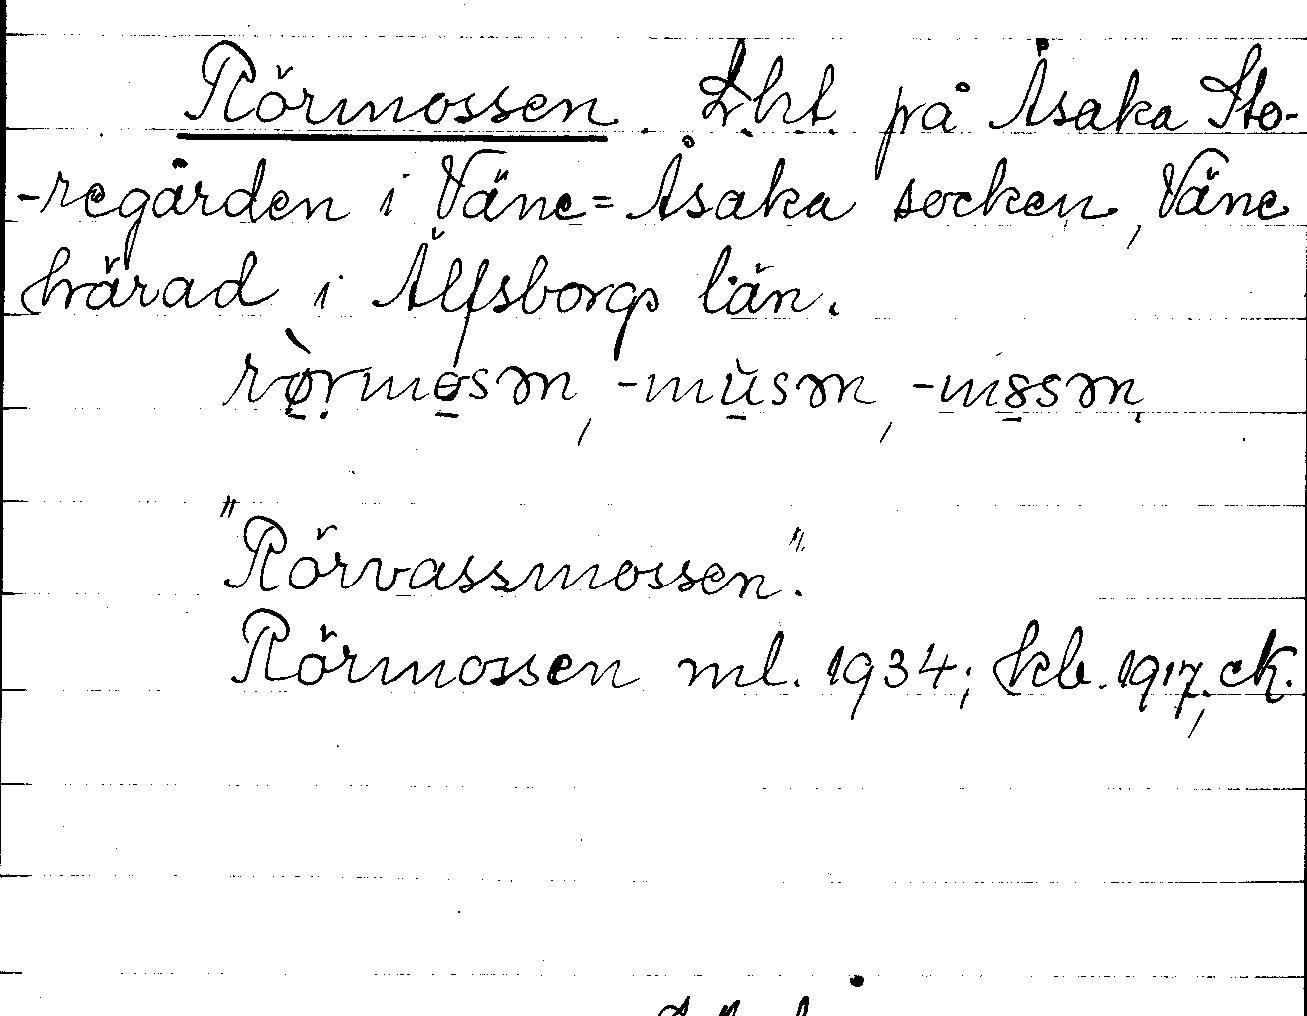 Rörmossen. Lht. på Åsaka Sto-
-regården i Väne=Åsaka socken, Väne
härad i Älfsborgs län.
rø̀rmosən, -musən, -m8sən.
"Rörvassmossen".
Rörmossen ml. 1934; kb. 1917, ck.